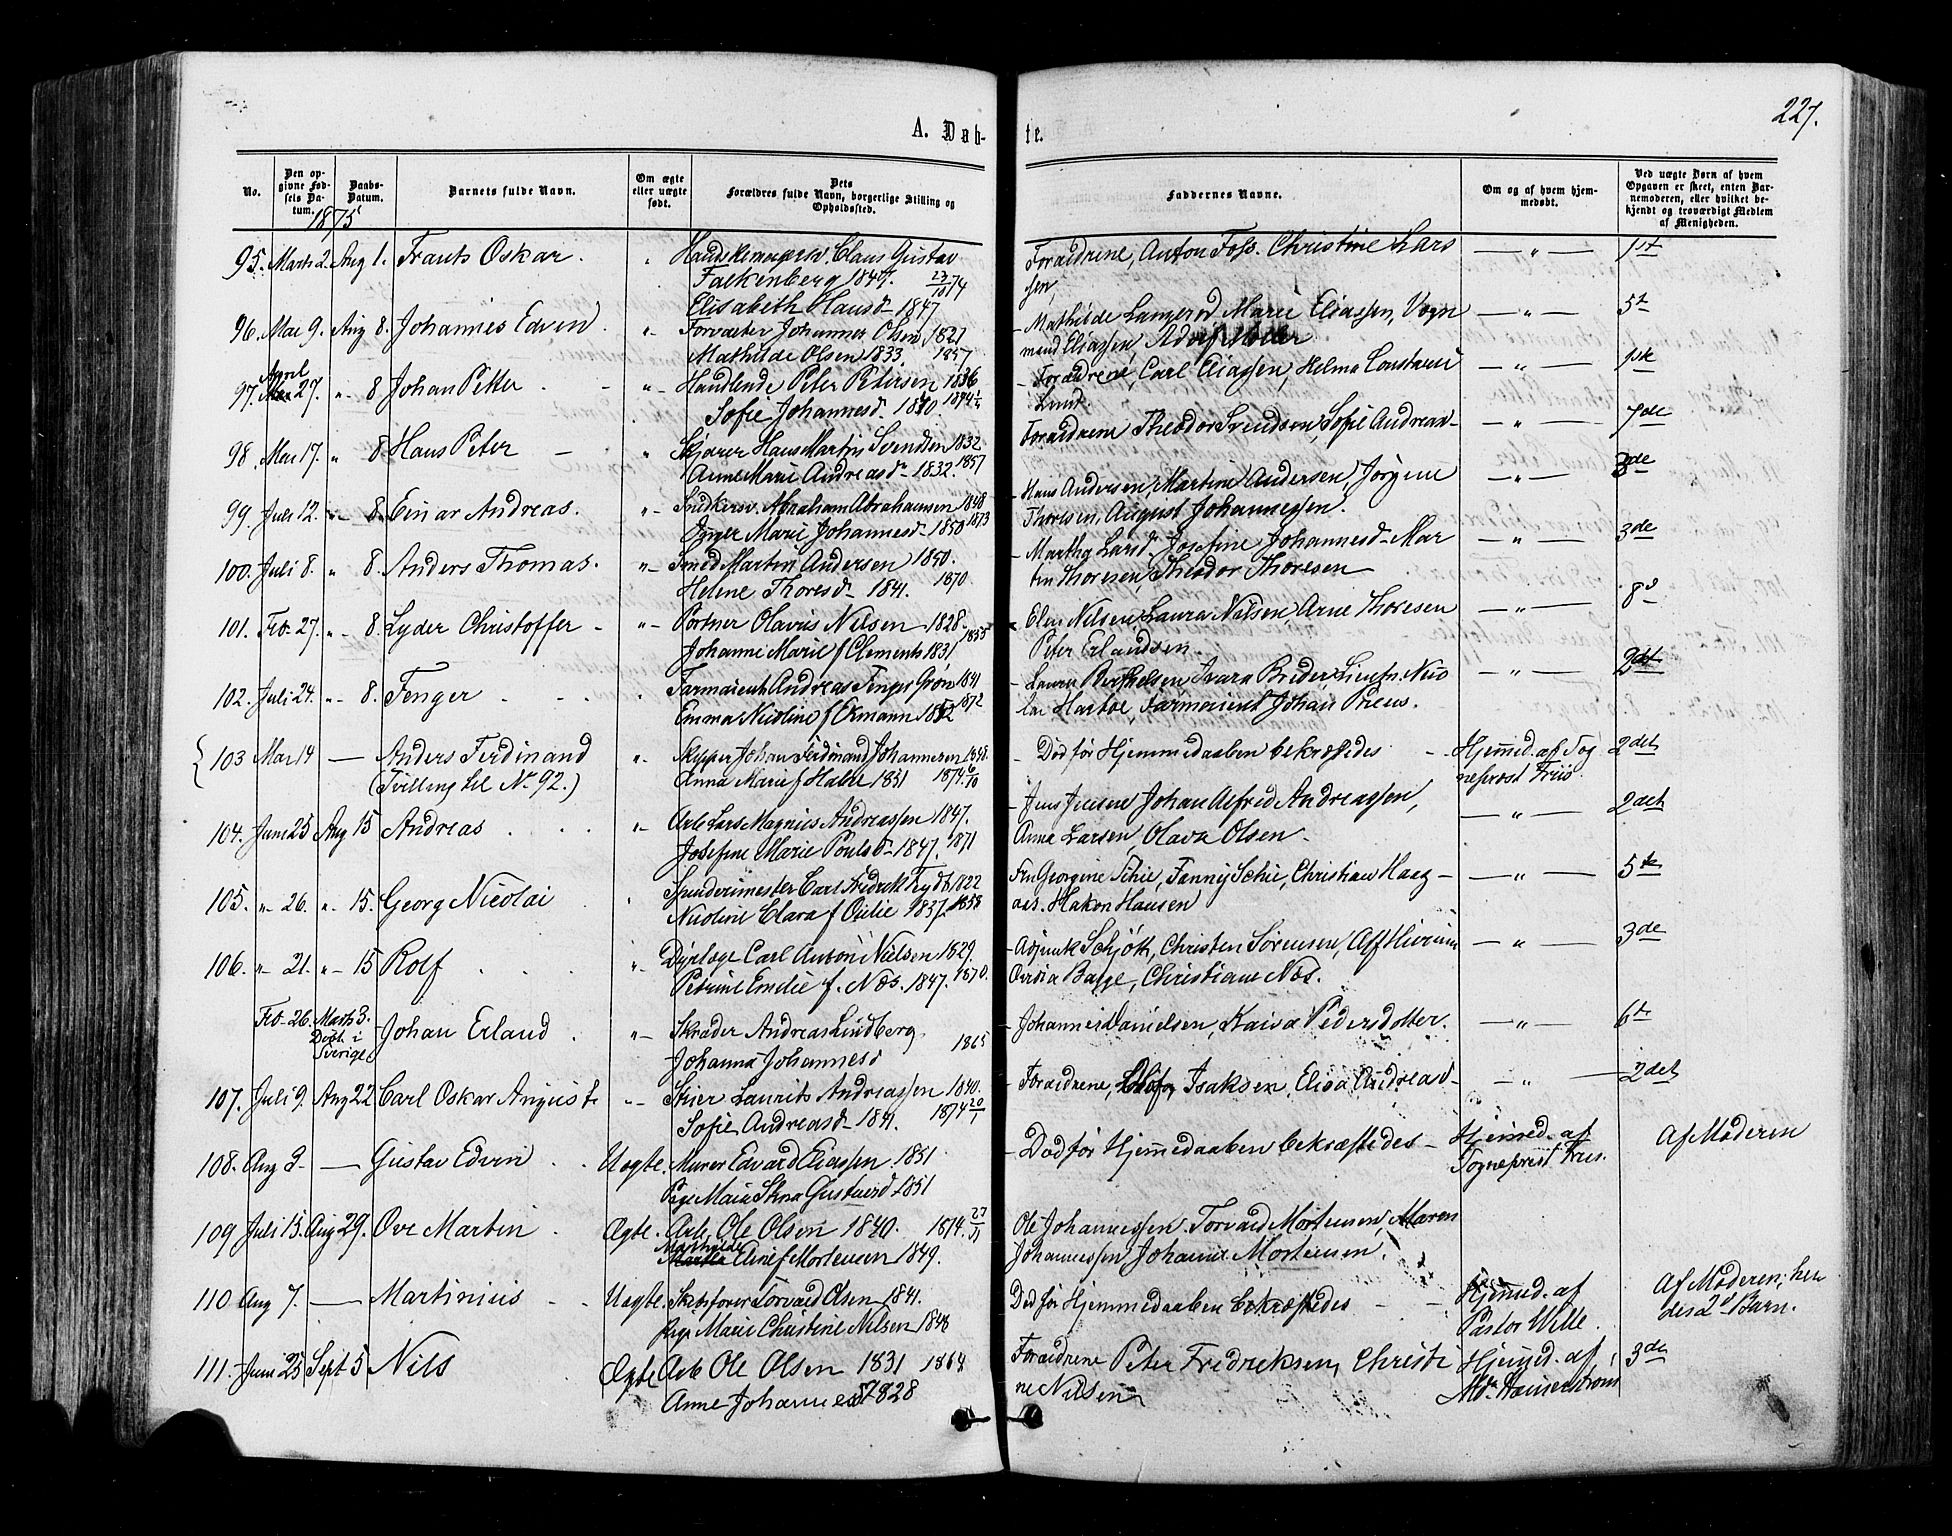 227.
A. Døb-
te.
No.
Den op-
givne Fød-
sels Da-
tum.
Daabs-
Datum.
Barnets fulde Navn.
Om ægte
eller uægte
født.
Dets
Forældres fulde Navn, borgerlige Stilling og
Opholdssted.
Faddernes Navne.
Om og af hvem hjem-
medøbt.
Ved uægte Børn af hvem
Opgaven er skeet, enten Bar-
nemoderen, eller hvilket be-
kjendt og troværdigt Medlem
af Menigheden.
1875
95. Marts 2. Aug 1. Frants Oskar. Claus Gustav Forældrene, Anton Foss. Christine Lars — „ — 1st
Falkenberg 1849. 23/10 74 sen,
Elisabeth Hansd 1847
96. Mai 9. Aug 8. Johannes Edvin „ Forvalter Johannes Olsen, 1821 Mathilde Langerød Marie Eliassen, Vogn — „ — 5t
Mathilde Olsen 1833. 1857 mand Eliassen, Adolf
April
97. Mai 27. „ 8 Johan Petter „ Handlende Peter Petersen 1836 Forældrene, Carl Eliassen, Helma Constance — „ — 1ste
Sofie Johannesd 1874 Lund.
98. Mai 17. „ 8 Hans Peter „ Hans Martin Svendsen 1832 Forældrene Theodor Svendsen, Sofie Andreas- — „ — 7de
Anne Marie Andreasdr 1832. 1857
99. Juli 12. „ 8. Einar Andreas. „ Snedkersv. Abraham Abrahamsen 1848 Hans Andersen, Martine Andersen, Jørgene — „ — 3de
Inger Marie Johannesd 1850 1873 Thoresen, August Johannessen.
100. Juli 8. „ 8. Anders Thomas. „ Smed Martin Andersen 1840. Martha Larsd. Josefine Johannesd Mar — „ — 3de
Helene Thoresd 1841. 1870 tin Thoresen, Theodor Thoresen
101. Feb 27. „ 8. Lyder Christoffer „ Portner Olavus Nilsen 1828. Elen Nilsen, Laura Nilsen, Arne Thoresen — „ — 8d
Johanne Marie f Clements 1831 1855 Peter Erlandsen.
102. Juli 24. „ 8. Fenger Farmaceut Andreas Fenger Grøn 1841 Laura Berthelsen Lieutn. Nico — „ — 2det
Emma Nicoline f Ekmann 1852 1872 lai Farmaceut Johan Preus.
103 Mai 14 — Anders Ferdinand „ Skipper Johan Ferdinand Johannesen Død før Hjemmedaaben bekræftedes Hjemmed. af Sog 2det
(Tvilling til No. 92.) Anna Marie f Halle 1851 1874. 6/10 neprest Friis
104. Juni 25 Aug 15 Andreas „ Arb Lars Magnus Andreassen 1847. Jens Jensen Johan Alfred Andreassen, — „ — 2det
Josefine Marie Poulsd 1847. 1871 Anna Larsen, Olava Olsen.
105. „ 26. „ 15. Georg Nicolai Carl Fredrik Frydt 1822 Frn Georgine Schie, Fanny Schie, Christian Haag — „ — 5te
Nicoline Clara f Oulie 1837. 1858 aas. Hakon Hansen
106. „ 21. „ 15 Rolf „ Dyrlæge Carl Anton Nielsen 1829. Adjunkt Schjøth, Christen Sørensen, Alf — „ — 3de
Petrine Emilie f. Næs. 1847. 1870. Basse, Christiane Næs.
Feb 26. Marts 3. Johan Erland „ Skræder Andreas Lindberg Johannes Danielsen, Kaisa Pedersdotter. — „ — 6te
Døbt i
Sverige Johanna Johannesd 1865
107. Juli 9. Aug 22 Carl Oskar August „ Laurits Andreassen 1840. Forældrene, Isaksen, Elisa Andreas — „ — 2det
Sofie Andreasd 1841. 1874 20/1
108. Aug 3. — Gustav Edvin Uægte. Murer Edvard Eliassen. 1851 Død før Hjemmedaaben bekræftedes Hjemmed. af Af Moderen
Pige Maia Stina Gustavsd 1851 Sogneprest Friis.
109 Juli 15. Aug 29. Ove Martin Ægte. Arb. Ole Olsen 1840. 1874. 27/11 Ole Johannessen Torvald Mortensen, Maren
Mathilde Eline f Mortensen 1849. Johannessen Johanne Mortensen.
110 Aug 7. — Martinius Uægte. Torvald Olsen 1841. Død før Hjemmedaaben bekræftedes Hjemmed. af Af Moderen; hen
Pige Marie Christine Nilsen 1848 Pastor Wille. des 2d Barn.
111. Juni 25 Sept 5 Nils Ægte Arb Ole Olsen 1831 1864 Forældrene Peter Fredriksen, Christi Hjemmed. af 3de
Anne Johannesd 1828 ne Nilsen Md. Hammerstrøm